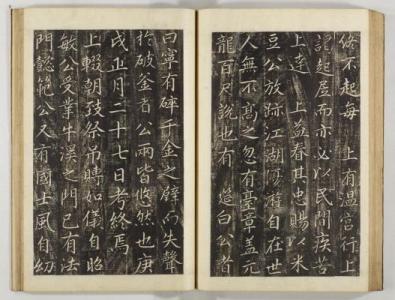 終不起每 上有溫宮行上
謹起居而亦必以民間疾苦
上達 上益眷其忠賜以米
豆公放跡江湖倘徉自在世
人無不高之忽有臺章蓋元
龍百尺說也有 造白公者
曰寧有碎千金之璧而失聲
於破釜者公兩皆悠然也庚
戌正月二十七日考終焉
上輟朝致祭弔賻如儀自昭
敏公受業牛溪之門已有法
門懿範公又有國士風自幼